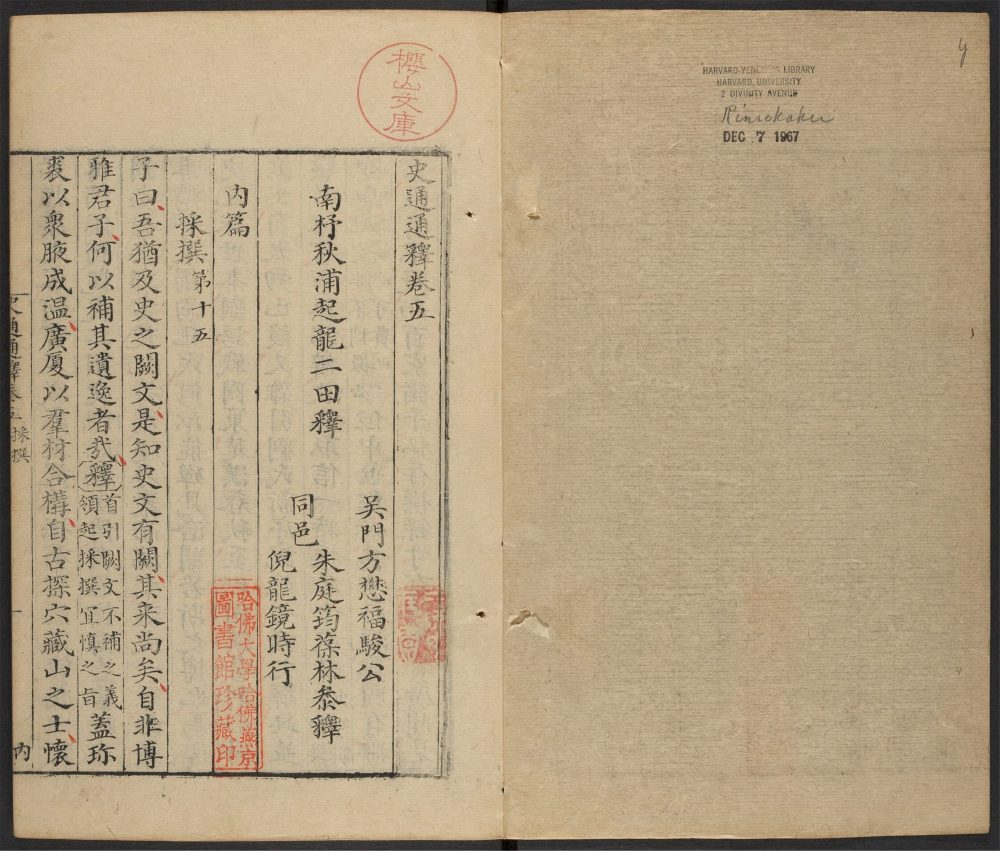 HARVARD-YENCHING LIBRARY
HARVARD UNIVERSITY
2 DIVINITY AVENUE
DEC 7 1967
櫻山文庫
史通通釋卷五
南杼秋浦起龍二田釋
吳門方懋福駿公
同邑
朱庭筠葆林叅釋
倪龍鏡時行
內篇
哈佛大學哈佛燕京
圖書館珍藏印
採撰第十五
子曰吾猶及史之闕文是知史文有闕其来尚矣自非博
雅君子何以補其遺逸者㢤釋首引闕文不補之義
領起採撰宜慎之旨
蓋珎
裘以衆腋成温廣厦以羣材合構自古探穴藏山之士懷
史通通釋卷五 採撰
一
內